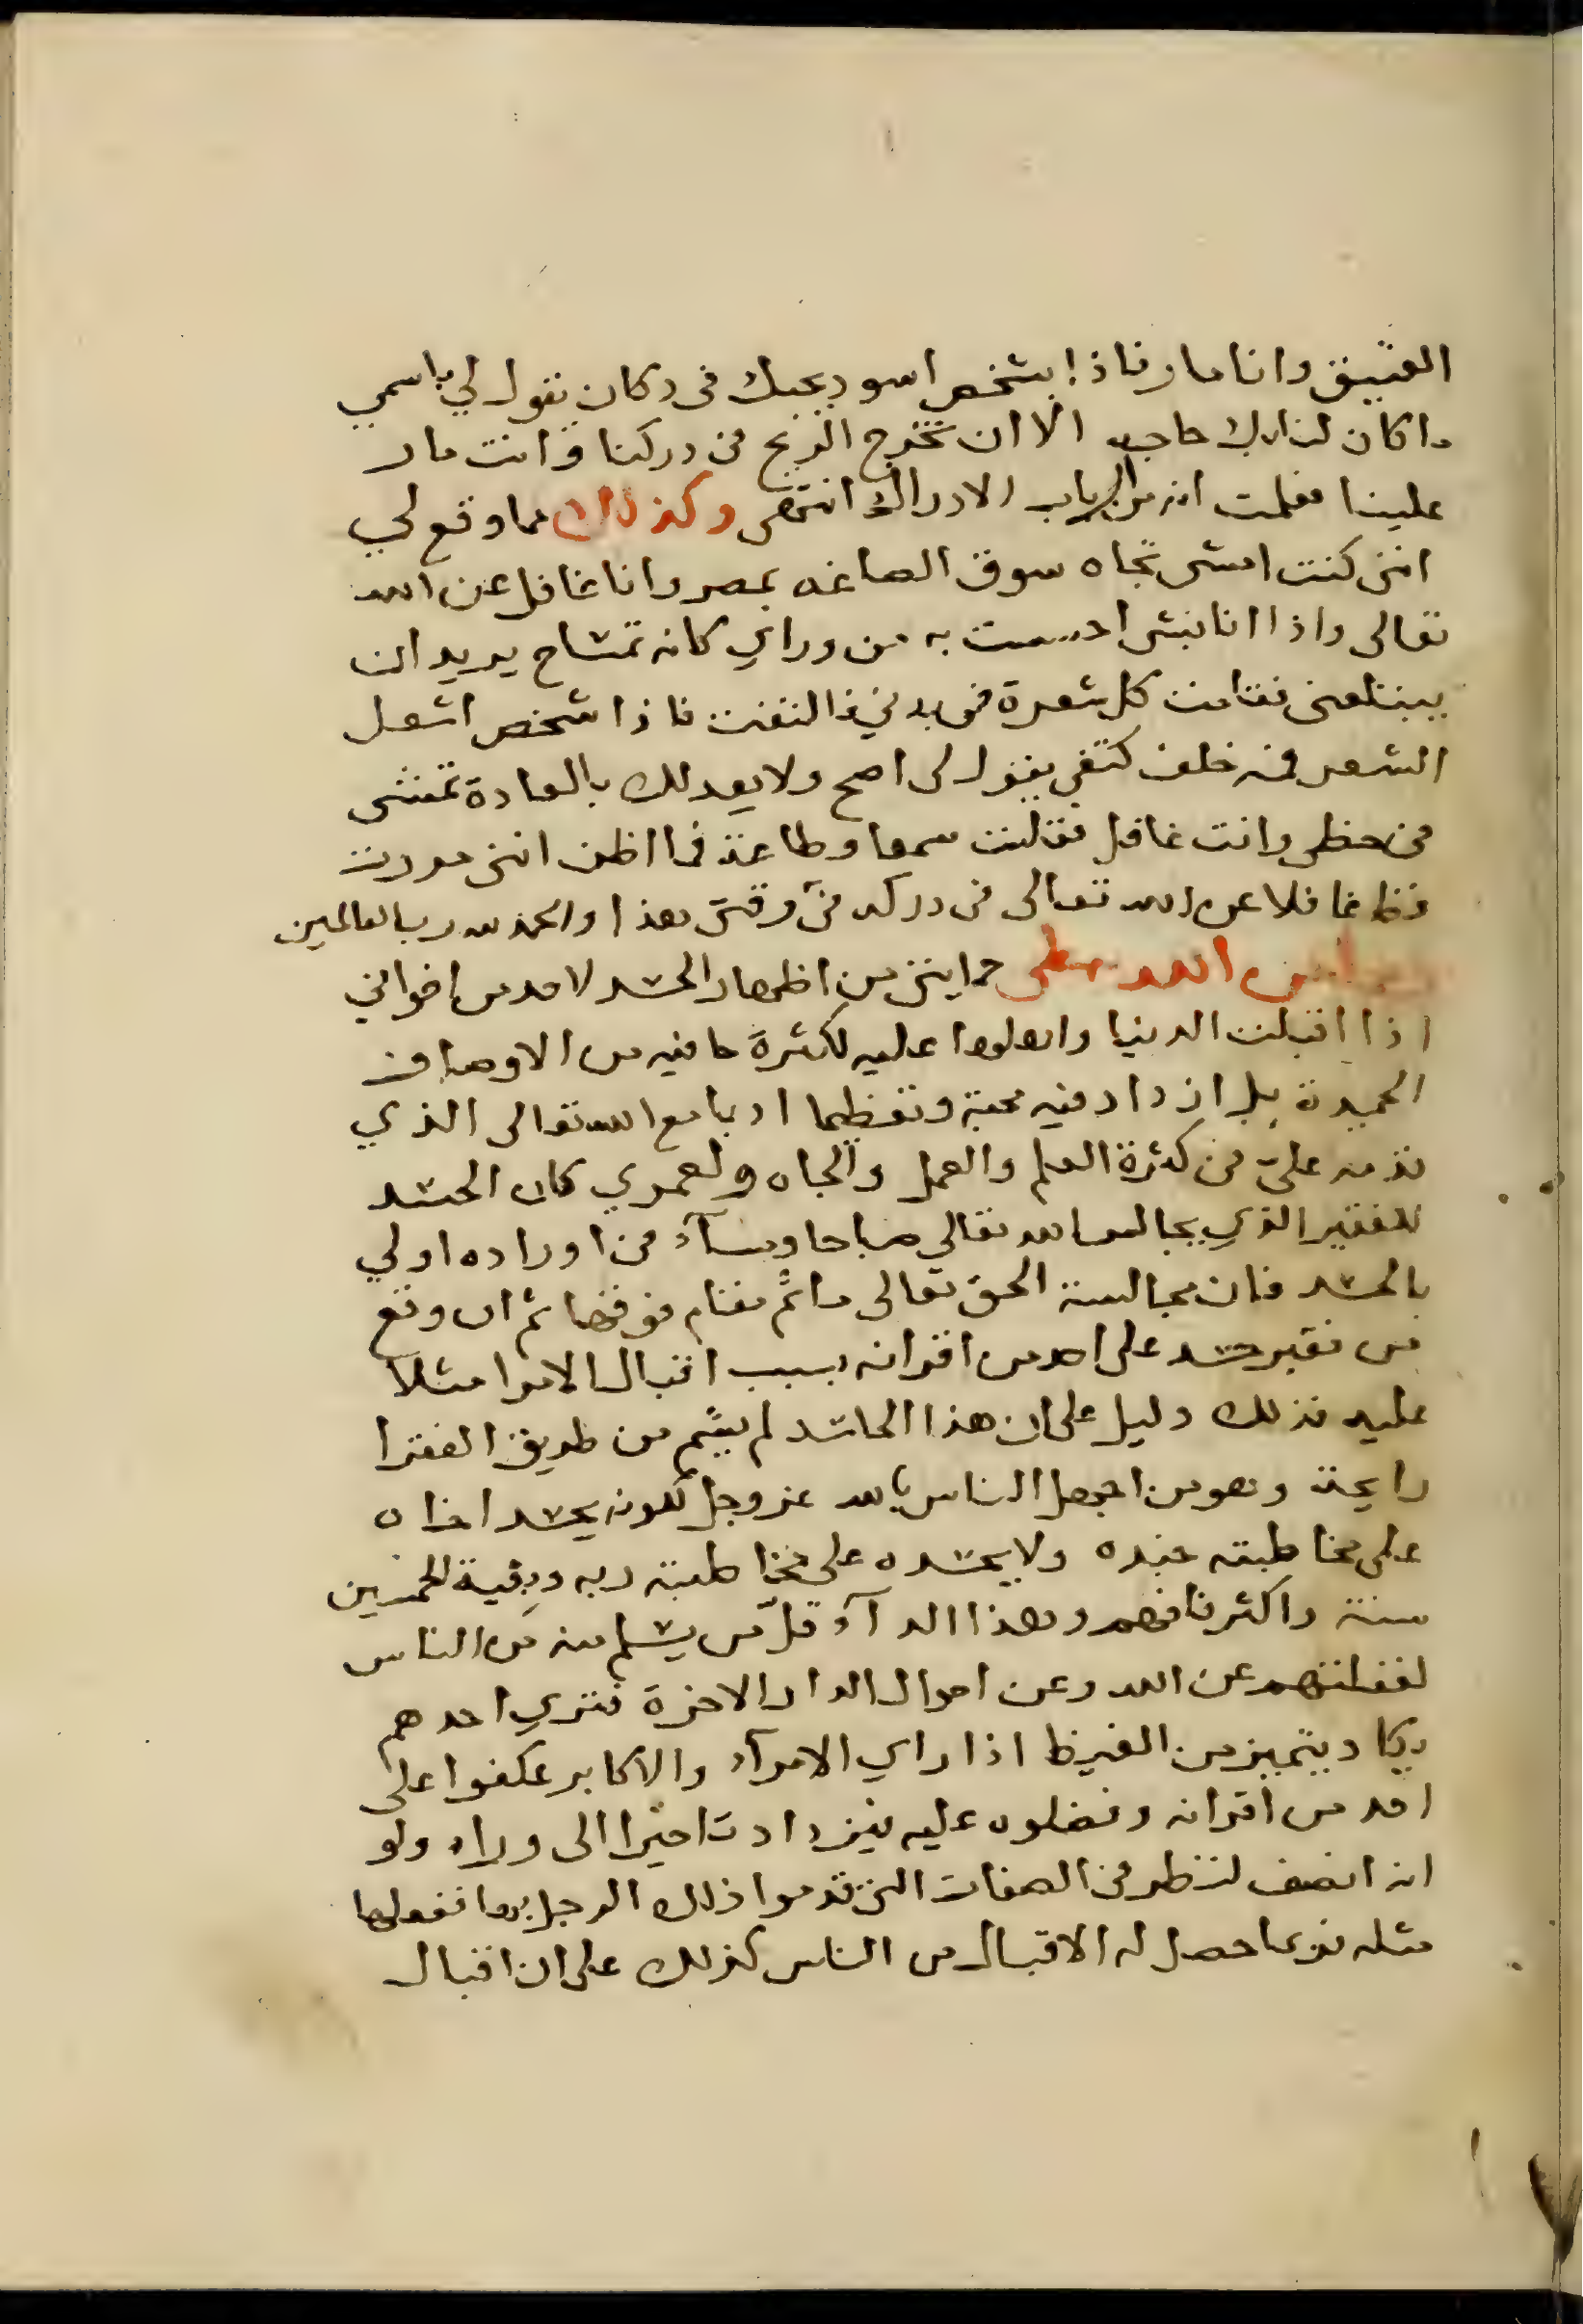 العتيق وانا مار فاذا بشخص اسود يحبك في دكان يقول لي باسمي
ما كان لنا بك حاجه الا ان تخرج الريح في دركنا وانت مار
علينا فعلمت انه من ارباب الادراك انتهى وكذلك مما وقع لي
انني كنت امشي تجاه سوق الصاغه بمصر وانا غافل عن الله
تعالى واذا انا بشي احسست به من وراي كانه تمساح يريد ان
يبتلعني فقامت كل شعرة في بدني فالتفت فاذا شخص اشعل
الشعر فيه خلف كتفي يقول لي اصح ولا يعد لك بالعادة تمشي
في خطي وانت غافل فقلت سمعا وطاعة فما اظن انني مررت
قط غافلا عن الله تعالى في دركه في وقتي هذا والحمد لله رب العالمين
من الله على حمايتي من اظهار الحسد لاحد من اخواني
اذا اقبلت الدنيا واهلها عليه لكثرة ما فيه من الاوصاف
الحميدة بل ازداد فيه محبة وتعظيما ادبا مع الله تعالى الذي
قدمه علي في كثرة العلم والعمل والجاه ولعمري كان الحسد
للفقير الذي يجالس الله تعالى صباحا ومساء في اوراده اولي
بالحسد فان مجالسة الحق تعالى ما ثم مقام فوقها ثم ان وقع
من فقير حسد على احد من اقرانه بسبب اقبال الامرا مثلا
عليه فذلك دليل على ان هذا الحاسد لم يشم من طريق الفقرا
رايحة وهو من اجهل الناس بالله عز وجل لكونه يحسد اخاه
على مخاطبته عبده ولا يحسده على مخاطبته ربه وبقية للخمسين
سنة واكثر فافهم وهذا الداء قل من يسلم منه من الناس
لغفلتهم عن الله وعن احوال الدار الاخرة فتري احدهم
يكاد يتميز من الغيظ اذا راي الامراء والاكابر عكفوا على
احد من اقرانه وفضلوه عليه فيزداد تاخيرا الى وراه ولو
انه انصف لنظر في الصفات التي قدموا ذلك الرجل بها ففعلها
مثله فربما حصل له الاقبال من الناس كذلك على ان اقبال